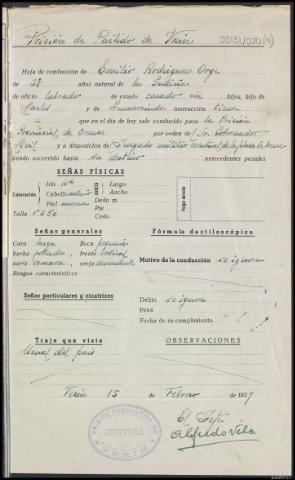 Prisión de Partido de Verín
25131/020(4)
Hoja de conducción de Emilio Rodriguez
de 28 años natural de la
de oficio labrador de estado casado sin hijos, hijo de
Carlos y de Gumersinda instrucción tiene
a que en el día de hoy sale conducido para la Prisión
Provincial de Orense por orden del Sr. Gobernador
Civil y a disposición de Juzgado militar eventual de la plaza de Orense
yendo socorrido hasta su destino antecedentes penales
SEÑAS FÍSICAS
Coloración
Iris
Cabello castaño
Piel morena
Talla 1'650
Largo
Ancho
Dedo m
Pie
Codo
Señas generales
Cara larga Boca pequeña
barba poblada frente vertical
nariz convexa oreja descendente
Rasgos característicos
Fórmula dactiloscópica
Motivo de la conducción se ignora
Señas particulares y cicatrices
Delito se ignora
Pena
Fecha de su cumplimiento
Traje que viste
Usual del país
OBSERVACIONES
Verín 15 de Febrero de 1937
El Jefe
Alfredo Vila
PRISIÓN PREVENTIVA DE
JEFATURA
VERIN